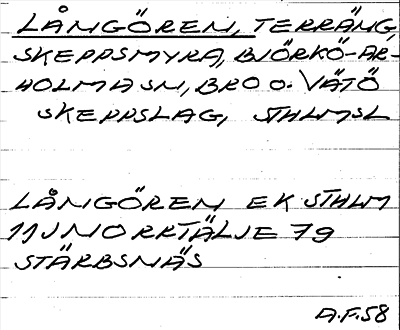 LÅNGÖREN, TERRÄNG,
SKEPPSMYRA, BJÖRKÖ-AR-
HOLMA SN, BRO O. VÄTÖ
SKEPPSLAG, STHLMSL
LÅNGÖREN EK STHLM
11J NORRTÄLJE 79
STÄRBSNÄS
A.F. 58